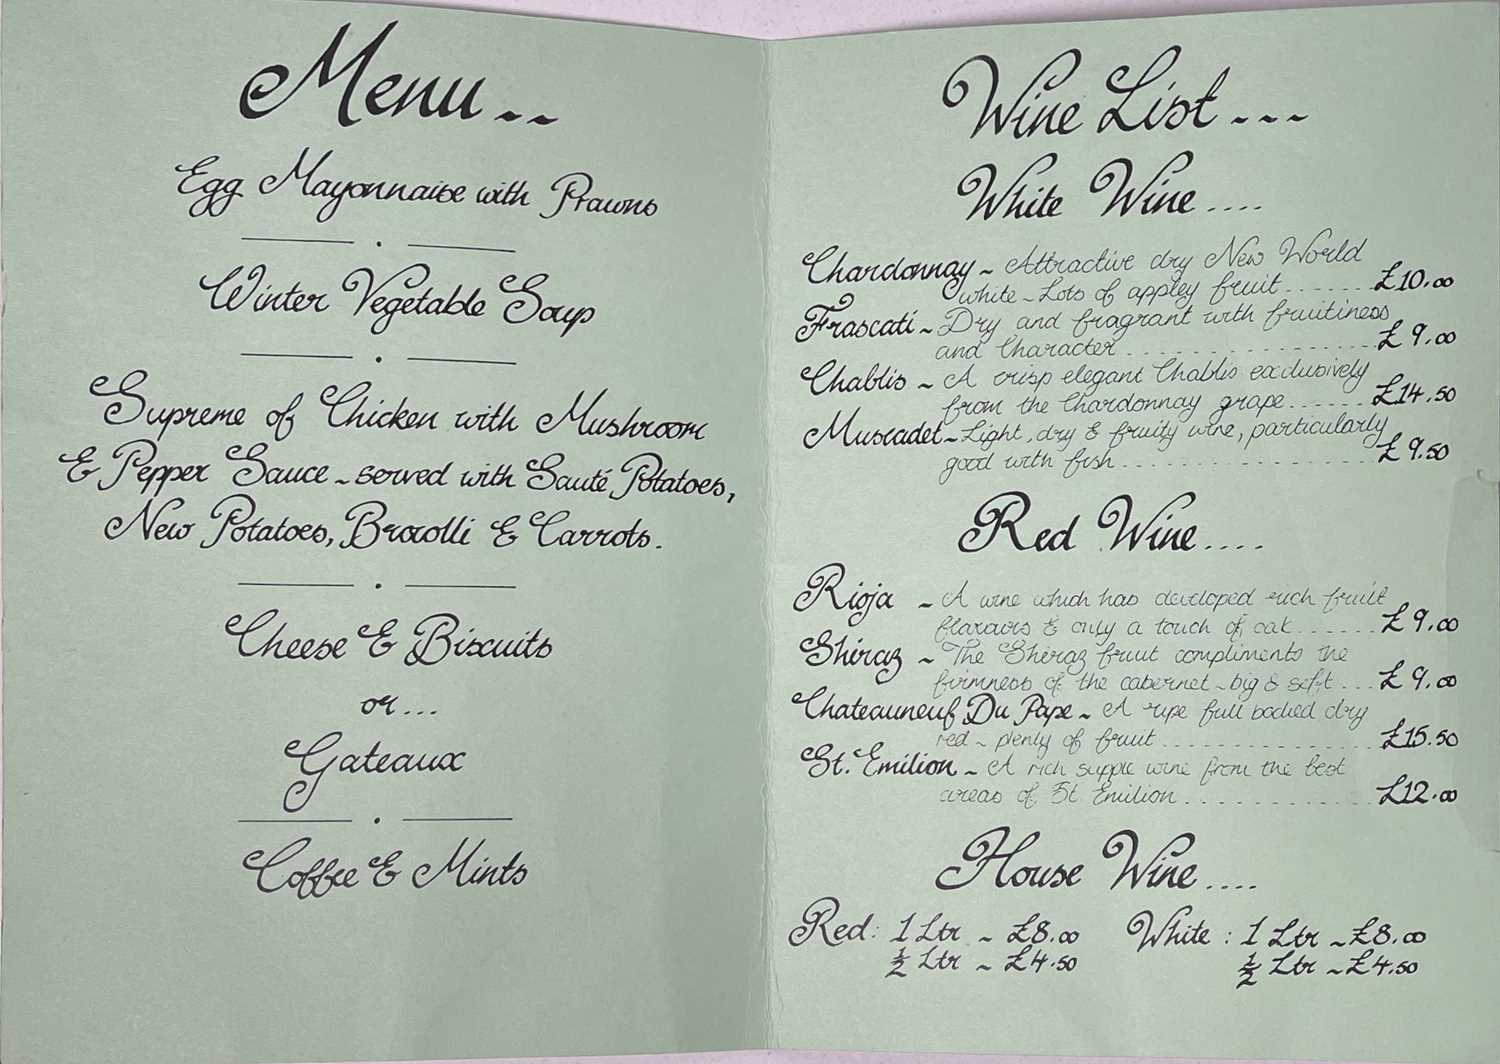 Menu ~~
Egg Mayonnaise with Prawns
Winter Vegetable Soup
Supreme of Chicken with Mushroom
& Pepper Sauce ~ served with Sauté Potatoes,
New Potatoes, Brocolli & Carrots.
Cheese & Biscuits
or...
Gateaux
Coffee & Mints
Wine List ~~~
White Wine ....
Chardonnay ~ Attractive dry New World
white ~ Lots of appley fruit ...... £10.00
Frascati ~ Dry and fragrant with fruitiness
and Character .................. £9.00
Chablis ~ A crisp elegant Chablis exclusively
from the Chardonnay grape ...... £14.50
Muscadet ~ Light, dry & fruity wine, particularly
good with fish .................. £9.50
Red Wine ....
Rioja ~ A wine which has developed rich fruit
flavours & only a touch of oak ...... £9.00
Shiraz ~ The Shiraz fruit compliments the
firmness of the cabernet ~ big & soft ... £9.00
Chateauneuf Du Pape ~ A ripe full bodied dry
red ~ plenty of fruit .................. £15.50
St. Emilion ~ A rich supple wine from the best
areas of St Emilion .................. £12.00
House Wine ....
Red: 1 Ltr ~ £8.00 White : 1 Ltr ~ £8.00
½ Ltr ~ £4.50 ½ Ltr ~ £4.50